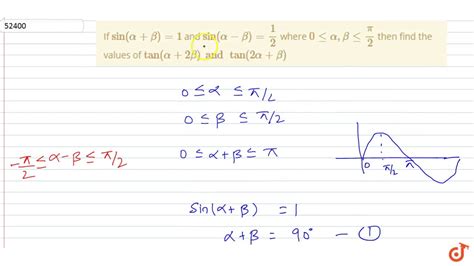 52400
If sin(α + β) = 1 and sin(α − β) = 1/2 where 0 ≤ α, β ≤ π/2 then find the
values of tan(α + 2β) and tan(2α + β)
0 ≤ α ≤ π/2
0 ≤ β ≤ π/2
-π/2 ≤ α-β ≤ π/2
0 ≤ α+β ≤ π
0 π/2 π
Sin(α+β) = 1
α+β = 90° — ①
doubtnut